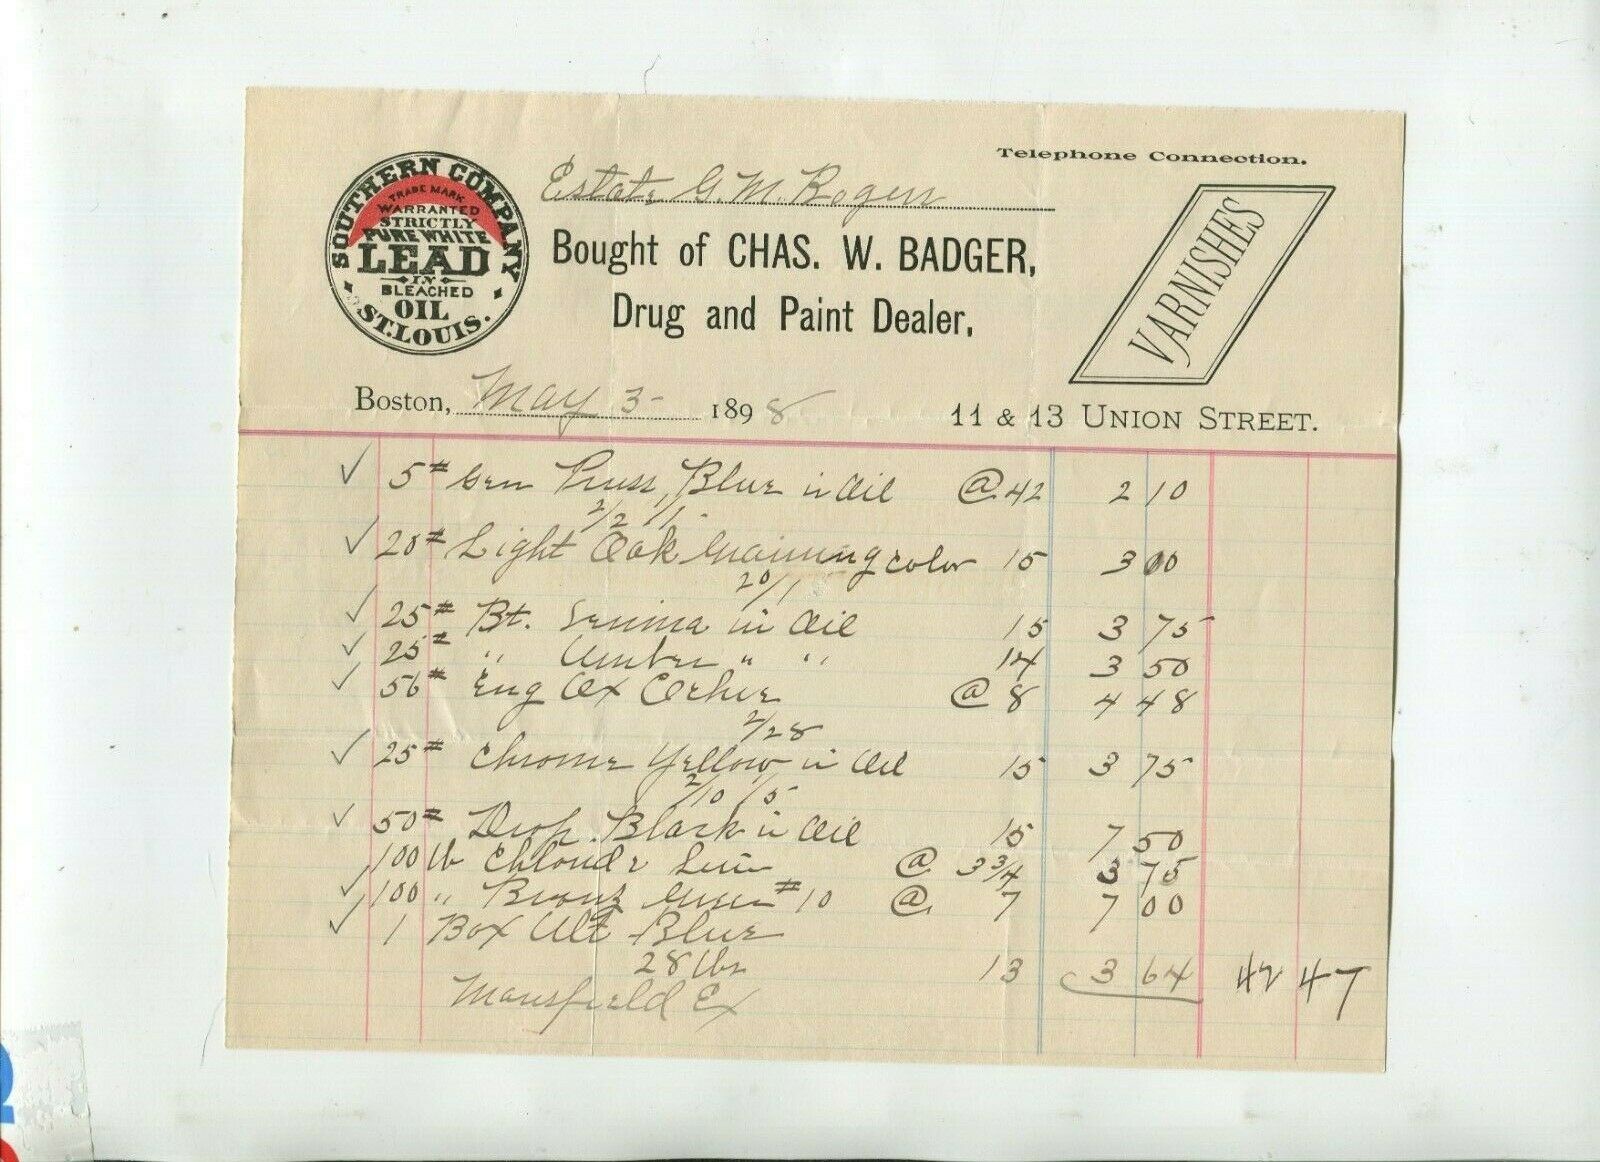 Telephone Connection.
SOUTHERN COMPANY
TRADE MARK
WARRANTED
STRICTLY
PURE WHITE
LEAD
IN
BLEACHED
OIL
ST. LOUIS.
Estate G. M. Rogers
Bought of CHAS. W. BADGER,
Drug and Paint Dealer,
VARNISHES
Boston, May 3 - 1898
11 & 13 UNION STREET.
✓ 5# Gen Pruss. Blue in Oil @ 42 2 10
2/2 1/1
✓ 20# Light Oak Graining color 15 3 00
20/1
✓ 25# Bt. Sienna in Oil 15 3 75
✓ 25# " Umber " " 14 3 50
✓ 56# Eng Ox Ochre @ 8 4 48
2/28
✓ 25# Chrome Yellow in Oil 15 3 75
2/10 1/5
✓ 50# Drop Black in Oil 15 7 50
100 lb Chloride Lime @ 3 3/4 3 75
✓ 100 " Bronze Green #10 @ 7 7 00
✓ 1 Box Ult Blue
28 lbs 13 3 64 42 47
Mansfield Ex